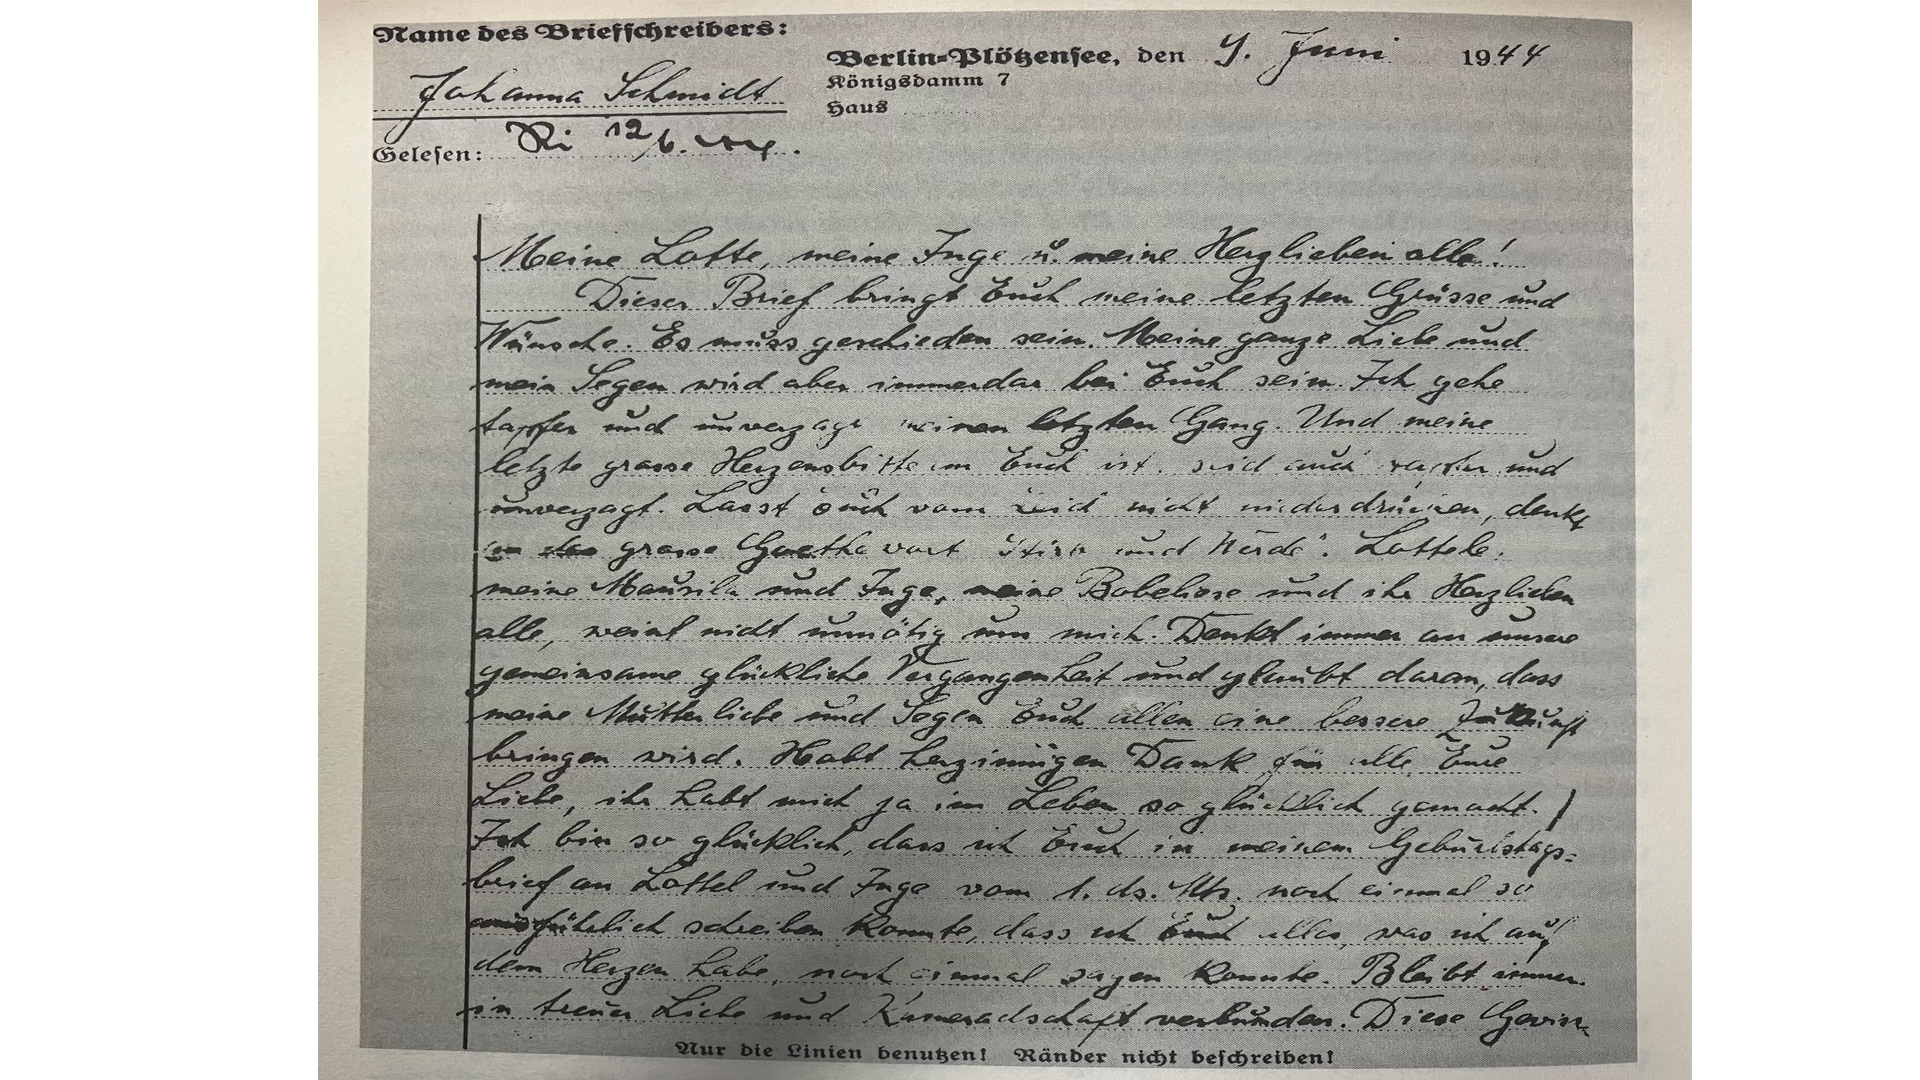 Name des Briefschreibers:
Johanna Schmidt
Berlin-Plötzensee, den 9. Juni 1944
Königsdamm 7
Haus
Gelesen: Ri 12/6.
Meine Lotte, meine Inge u. meine Herzlieben alle!
Dieser Brief bringt Euch meine letzten Grüsse und
Wünsche. Es muss geschieden sein. Meine ganze Liebe und
mein Segen wird aber immerdar bei Euch sein. Ich gehe
tapfer und unverzagt meinen letzten Gang. Und meine
letzte grosse Herzensbitte an Euch ist: seid auch tapfer und
unverzagt. Lasst Euch vom Leid nicht niederdrücken, denkt
an das grosse Goethewort "Stirb und Werde". Lottele.
meine und Inge, meine und ihr Herzlieben
alle, weint nicht unnötig um mich. Denkt immer an unsere
gemeinsame glückliche Vergangenheit und glaubt daran, dass
meine Mutterliebe und Segen Euch allen eine bessere Zukunft
bringen wird. Habt herzinnigen Dank für alle Eure
Liebe, ihr habt mich ja im Leben so glücklich gemacht.
Ich bin so glücklich, dass ich Euch in meinem Geburtstags-
brief an Lottel und Inge vom 1. ds. Mts. noch einmal so
ausführlich schreiben konnte, dass ich Euch alles, was ich auf
dem Herzen habe, noch einmal sagen konnte. Bleibt immer
in treuer Liebe und Kameradschaft verbunden. Diese Gewiss-
Nur die Linien benutzen! Ränder nicht beschreiben!